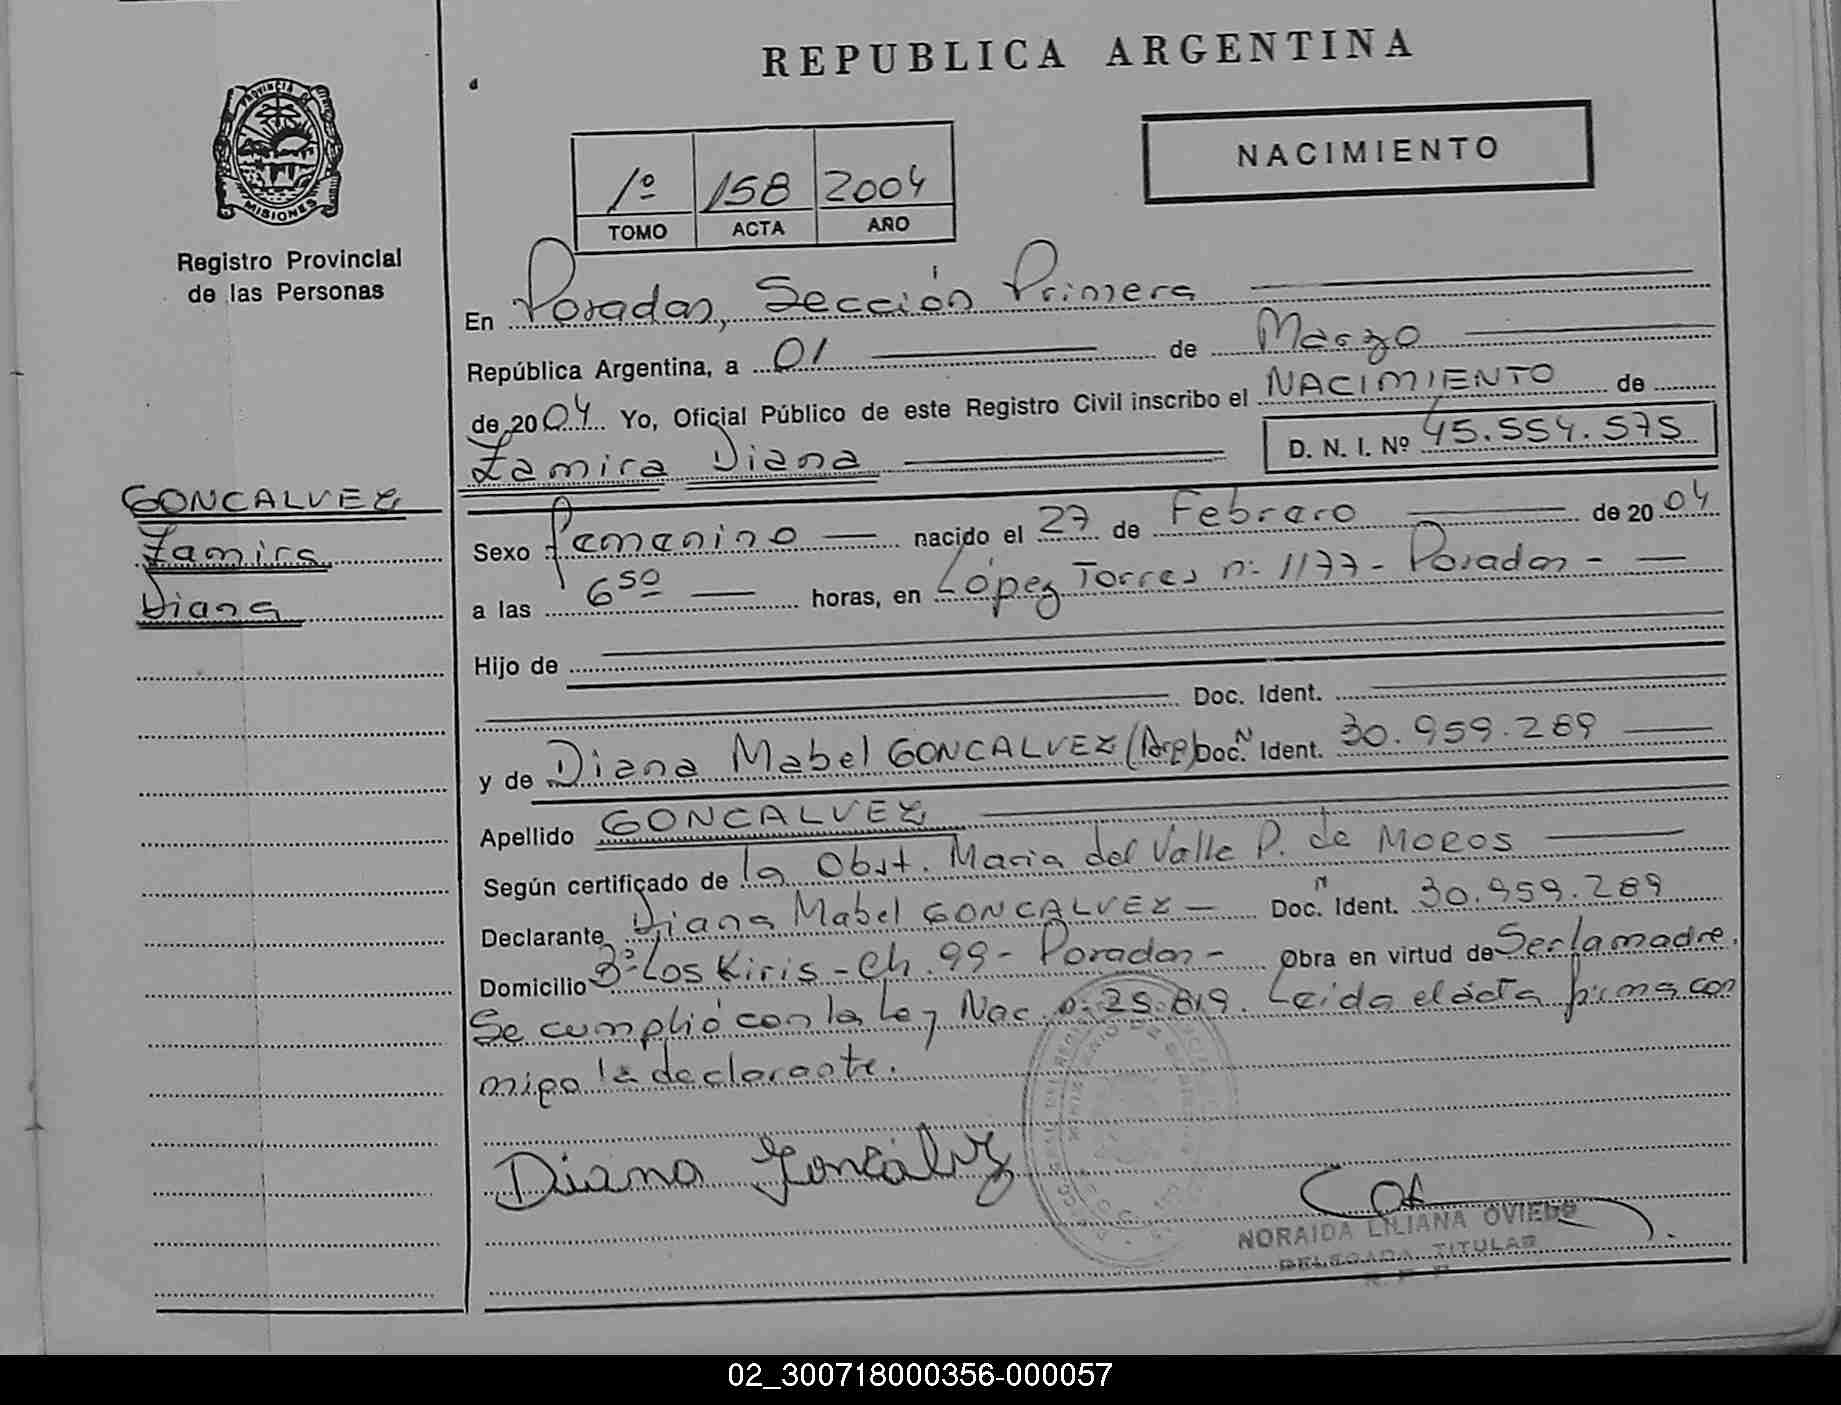 REPUBLICA ARGENTINA
PROVINCIA DE
MISIONES
Registro Provincial
de las Personas
1º 158 2004
TOMO ACTA AÑO
NACIMIENTO
En Posadas, Sección Primera
República Argentina, a 01 de Marzo
de 2004 Yo, Oficial Público de este Registro Civil inscribo el NACIMIENTO de
Zamira Diana D. N. I. Nº 45.554.575
GONCALVEZ
Zamira
Diana
Sexo femenino nacido el 27 de Febrero de 2004
a las 6 50 horas, en López Torres n: 1177 - Posadas -
Hijo de
Doc. Ident.
y de Diana Mabel GONCALVEZ (Arg) Doc. N Ident. 30.959.289
Apellido GONCALVEZ
Según certificado de la Obst. Maria del Valle P. de MOROS
Declarante Diana Mabel GONCALVEZ - Doc. N Ident. 30.959.289
Domicilio Bº Los Kiris - Ch. 99 - Posadas - Obra en virtud de Ser la madre.
Se cumplió con la Ley Nac. n: 25.819. Leida el acta firma con
migo la declarante.
Diana Goncalvez
NORAIDA LILIANA OVIEDO
DELEGADA TITULAR
02_300718000356-000057